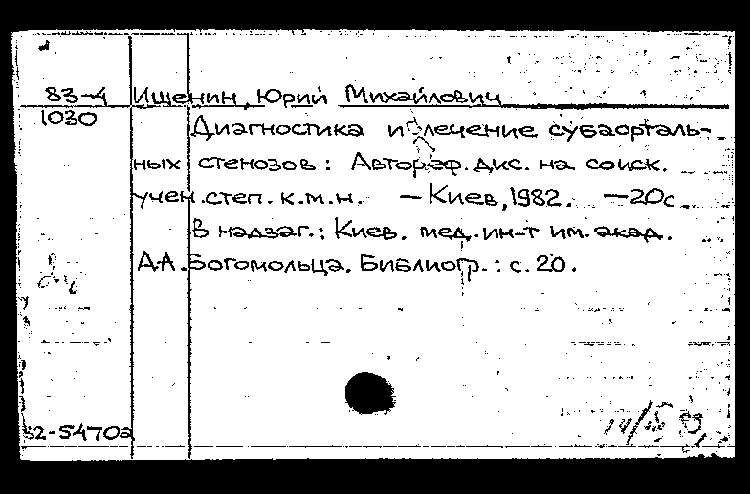 83-4 Ищенин, Юрий Михайлович
1030
Диагностика и лечение субаорталь-
ных стенозов: Автореф. дис. на соиск.
учен. степ. к.м.н. — Киев, 1982. — 20с.
В надзаг.: Киев. мед. ин-т им. акад.
А.А. Богомольца. Библиогр.: с. 20.
82-54702